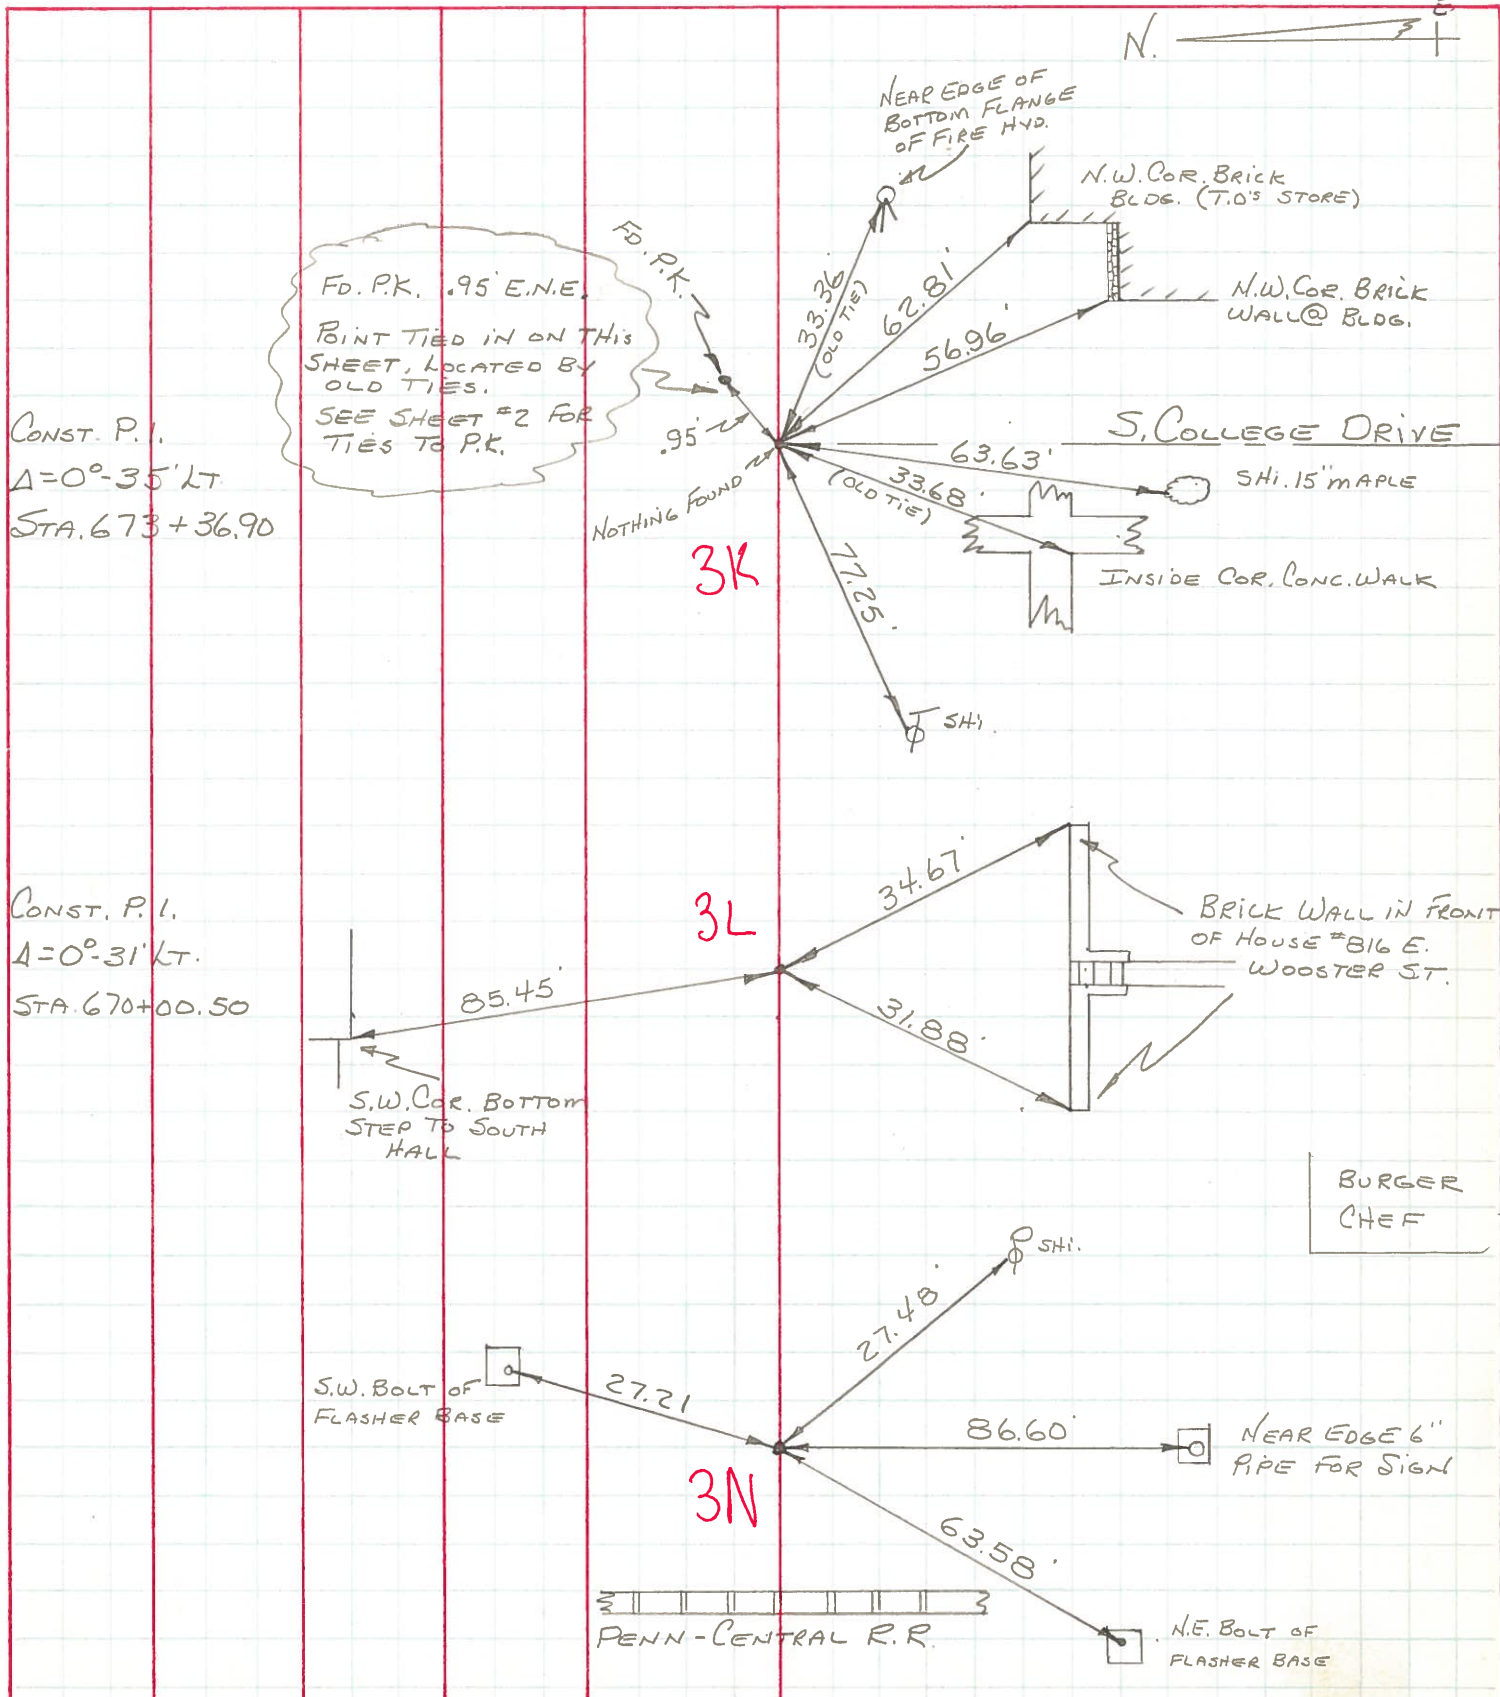 E.
N.
NEAR EDGE OF
BOTTOM FLANGE
OF FIRE HYD.
N.W. COR. BRICK
BLDG. (T.O'S STORE)
FD. P.K.
FD. P.K. .95' E.N.E.
POINT TIED IN ON THIS
SHEET, LOCATED BY
OLD TIES.
SEE SHEET #2 FOR
TIES TO P.K.
33.36'
(OLD TIE)
62.81'
56.96'
N.W. COR. BRICK
WALL @ BLDG.
.95'
CONST. P.I.
Δ=0°-35' LT.
STA. 673+36.90
S. COLLEGE DRIVE
63.63'
SHI. 15" MAPLE
33.68'
(OLD TIE)
NOTHING FOUND
3K
77.25'
INSIDE COR. CONC. WALK
SHI.
CONST. P.I.
Δ=0°-31' LT.
STA. 670+00.50
3L
34.67'
85.45'
31.88'
BRICK WALL IN FRONT
OF HOUSE #816 E.
WOOSTER ST.
S.W. COR. BOTTOM
STEP TO SOUTH
HALL
BURGER
CHEF
SHI.
27.48'
S.W. BOLT OF
FLASHER BASE
27.21
86.60'
NEAR EDGE 6"
PIPE FOR SIGN
3N
63.58'
PENN-CENTRAL R.R.
N.E. BOLT OF
FLASHER BASE